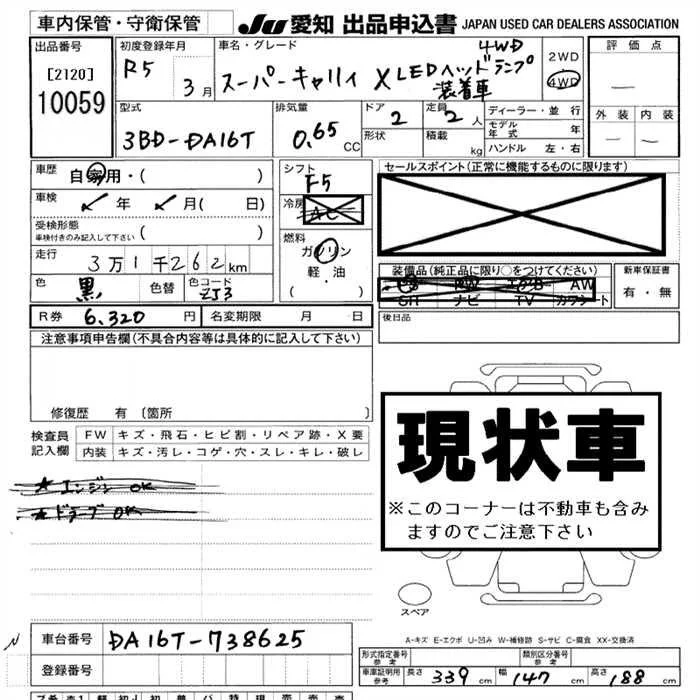 車内保管・守衛保管
JU 愛知 出品申込書 JAPAN USED CAR DEALERS ASSOCIATION
出品番号
[2120]
10059
初度登録年月
R5 3 月
車名・グレード
スーパーキャリィ X LEDヘッドランプ
装着車
4WD
2WD
4WD
評価点
外装 内装
型式
3BD-DA16T
排気量
0.65 CC
ドア
2
形状
定員
2 人
積載 kg
ディーラー・並行
モデル年式 年
ハンドル 左・右
車歴
自家用・( )
車検
年 月( 日)
受検形態
車検付きのみ記入して下さい ( )
走行
3万1千262km
色
黒
色替
色コード
ZJ3
シフト
F5
冷房
AC
燃料
ガソリン
軽・油
( ・ )
セールスポイント(正常に機能するものに限ります)
装備品(純正品に限り○をつけてください)
PS PW エアB AW
SR ナビ TV カワシート
新車保証書
有・無
R券 6,320 円 名変期限 月 日
後日品
注意事項申告欄(不具合内容等は具体的に記入して下さい)
修復歴 有〔箇所 〕
検査員
記入欄
FW キズ・飛石・ヒビ割・リペア跡・X要
内装 キズ・汚レ・コゲ・穴・スレ・キレ・破レ
★エンジンOK
★ドライブOK
現状車
※このコーナーは不動車も含み
ますのでご注意下さい
スペア
A-キズ E-エクボ U-凹み W-補修跡 S-サビ C-腐食 XX-交換済
N
車台番号 DA16T-738625
登録番号
形式指定番号
参考
類別区分番号
参考
車庫証明用
参考
長さ 339 cm 幅 147 cm 高さ 188 cm